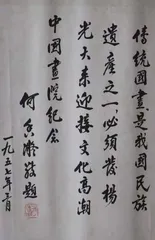 传统国画是我国民族
遗产之一必须发扬
光大来迎接文化高潮
中国画院纪念
何香凝敬题
一九五七年